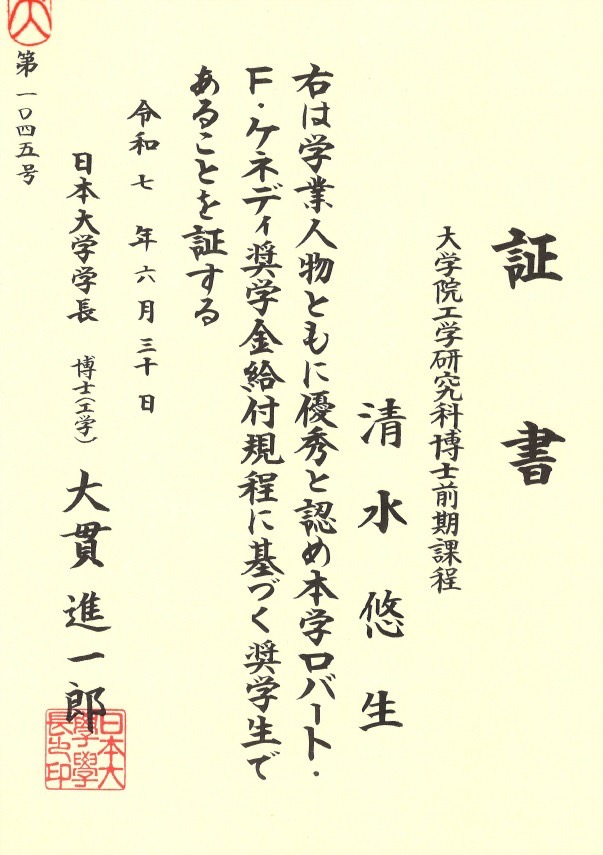 証書
大学院工学研究科博士前期課程
清水悠生
右は学業人物ともに優秀と認め本学ロバート・
F・ケネディ奨学金給付規程に基づく奨学生で
あることを証する
令和七年六月三十日
日本大学学長 博士(工学) 大貫進一郎
日本大
學學
長之印
第一〇四五号